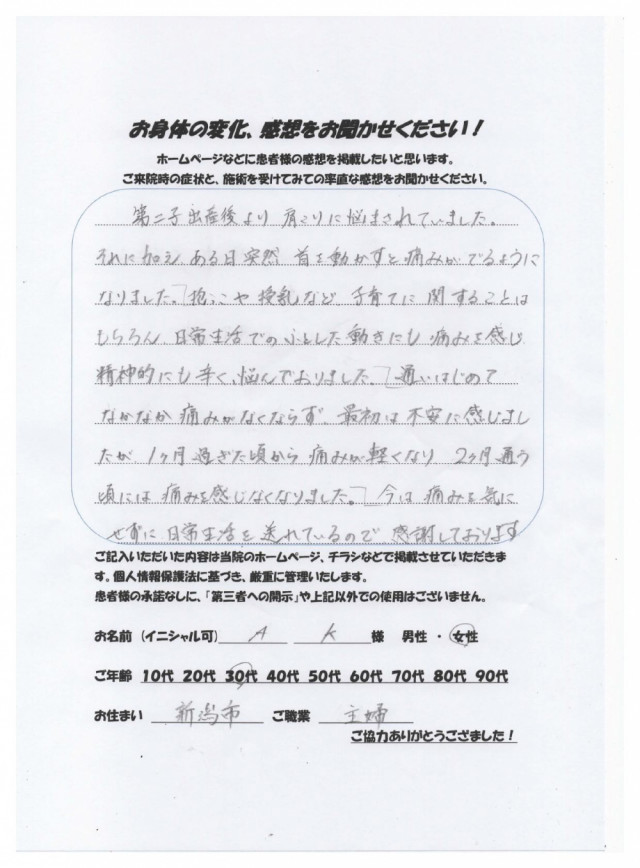 お身体の変化、感想をお聞かせください!
ホームページなどに患者様の感想を掲載したいと思います。
ご来院時の症状と、施術を受けてみての率直な感想をお聞かせください。
第二子出産後より 肩こりに悩まされていました。
それに加え ある日突然 首を動かすと痛みがでるように
なりました。抱っこや授乳など 子育てに関することは
もちろん、日常生活でのふとした動きにも痛みを感じ
精神的にも辛く、悩んでおりました。通いはじめて
なかなか痛みがなくならず、最初は不安に感じまし
たが、1ヶ月過ぎた頃から痛みが軽くなり 2ヶ月通う
頃には痛みを感じなくなりました。今は痛みを気に
せずに日常生活を送れているので 感謝しております
ご記入いただいた内容は当院のホームページ、チラシなどで掲載させていただきま
す。個人情報保護法に基づき、厳重に管理いたします。
患者様の承諾なしに、「第三者への開示」や上記以外での使用はございません。
お名前(イニシャル可) A K 様 男性・女性
ご年齢 10代 20代 30代 40代 50代 60代 70代 80代 90代
お住まい 新潟市 ご職業 主婦
ご協力ありがとうござました!